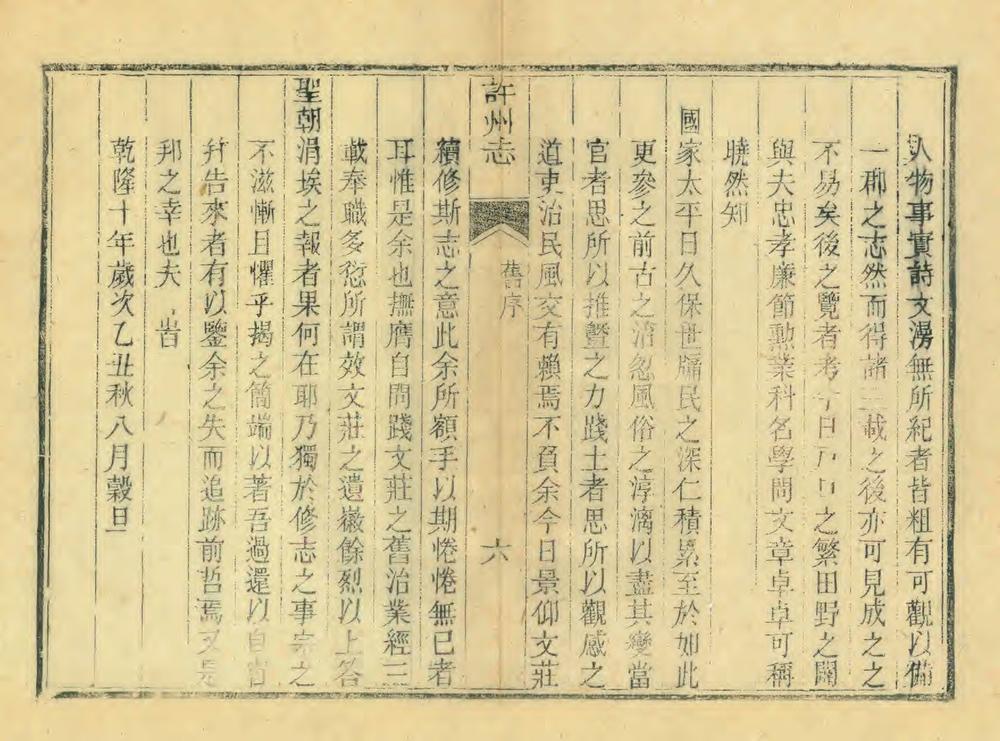 人物事實詩文湯無所紀者皆粗有可觀以備
一郡之志然而得諸三載之後亦可見成之之
不易矣後之覽者考今日戶口之繁田野之闢
與夫忠孝廉節勳業科名學問文章卓卓可稱
曉然知
國家太平日久保世牖民之深仁積累至於如此
更參之前古之治忽風俗之淳漓以盡其變當
官者思所以推暨之力踐土者思所以觀感之
道吏治民風交有賴焉不負余今日景仰文莊
許州志
舊序
六
續修斯志之意此余所額手以期惓惓無已者
耳惟是余也撫膺自問踐文莊之舊治業經三
載奉職多愆所謂效文莊之遺徽餘烈以上答
聖朝涓埃之報者果何在耶乃獨於修志之事宗之
不滋慚且懼乎揭之簡端以著吾過還以自
幷告來者有以鑒余之失而追跡前哲焉又是
邦之幸也夫 旹
乾隆十年歲次乙丑秋八月穀旦